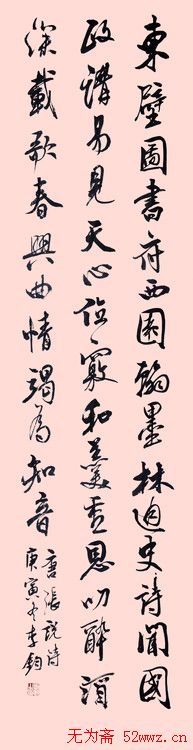 東壁圖書府西園翰墨林詩聞國
政講易見天心位竊和羹重恩叨醉酒
深載歌春興曲情竭為知音
唐張說詩
庚寅冬李鈞
无为斋 52wwz.cn